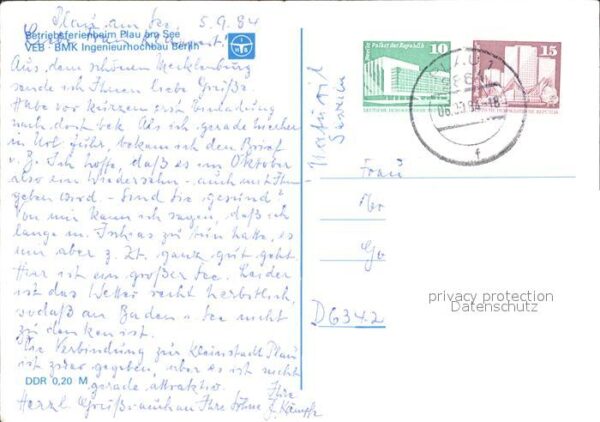 Plau am See 5.9.84
Betriebsferienheim Plau am See
VEB · BMK Ingenieurhochbau Berlin
Frau
Aus dem schönen Mecklenburg
sende ich Ihnen liebe Grüße.
Habe vor kurzem erst Einladung
nach dort bek. Als ich gerade hierher
in Url fuhr, bekam ich den Brief
v. I. Ich hoffe, daß es im Oktober
also ein Wiedersehn - auch mit Ihm
geben wird. - Sind Sie gesund?
Von mir kann ich sagen, daß ich
lange m. Ischias zu tun hatte, es
mir aber z. Zt. ganz gut geht.
Hier ist ein großer See. Leider
ist das Wetter recht herbstlich,
sodaß an Baden i. See nicht
zu denken ist.
Die Verbindung zur Kleinstadt Plau
ist zwar gegeben, aber es ist nicht
gerade attraktiv. Ihre
Herzl. Grüße auch an Ihre Söhne
DDR 0,20 M
Berlin Palast der Republik
10
15
Frau
D6342
privacy protection
Datenschutz